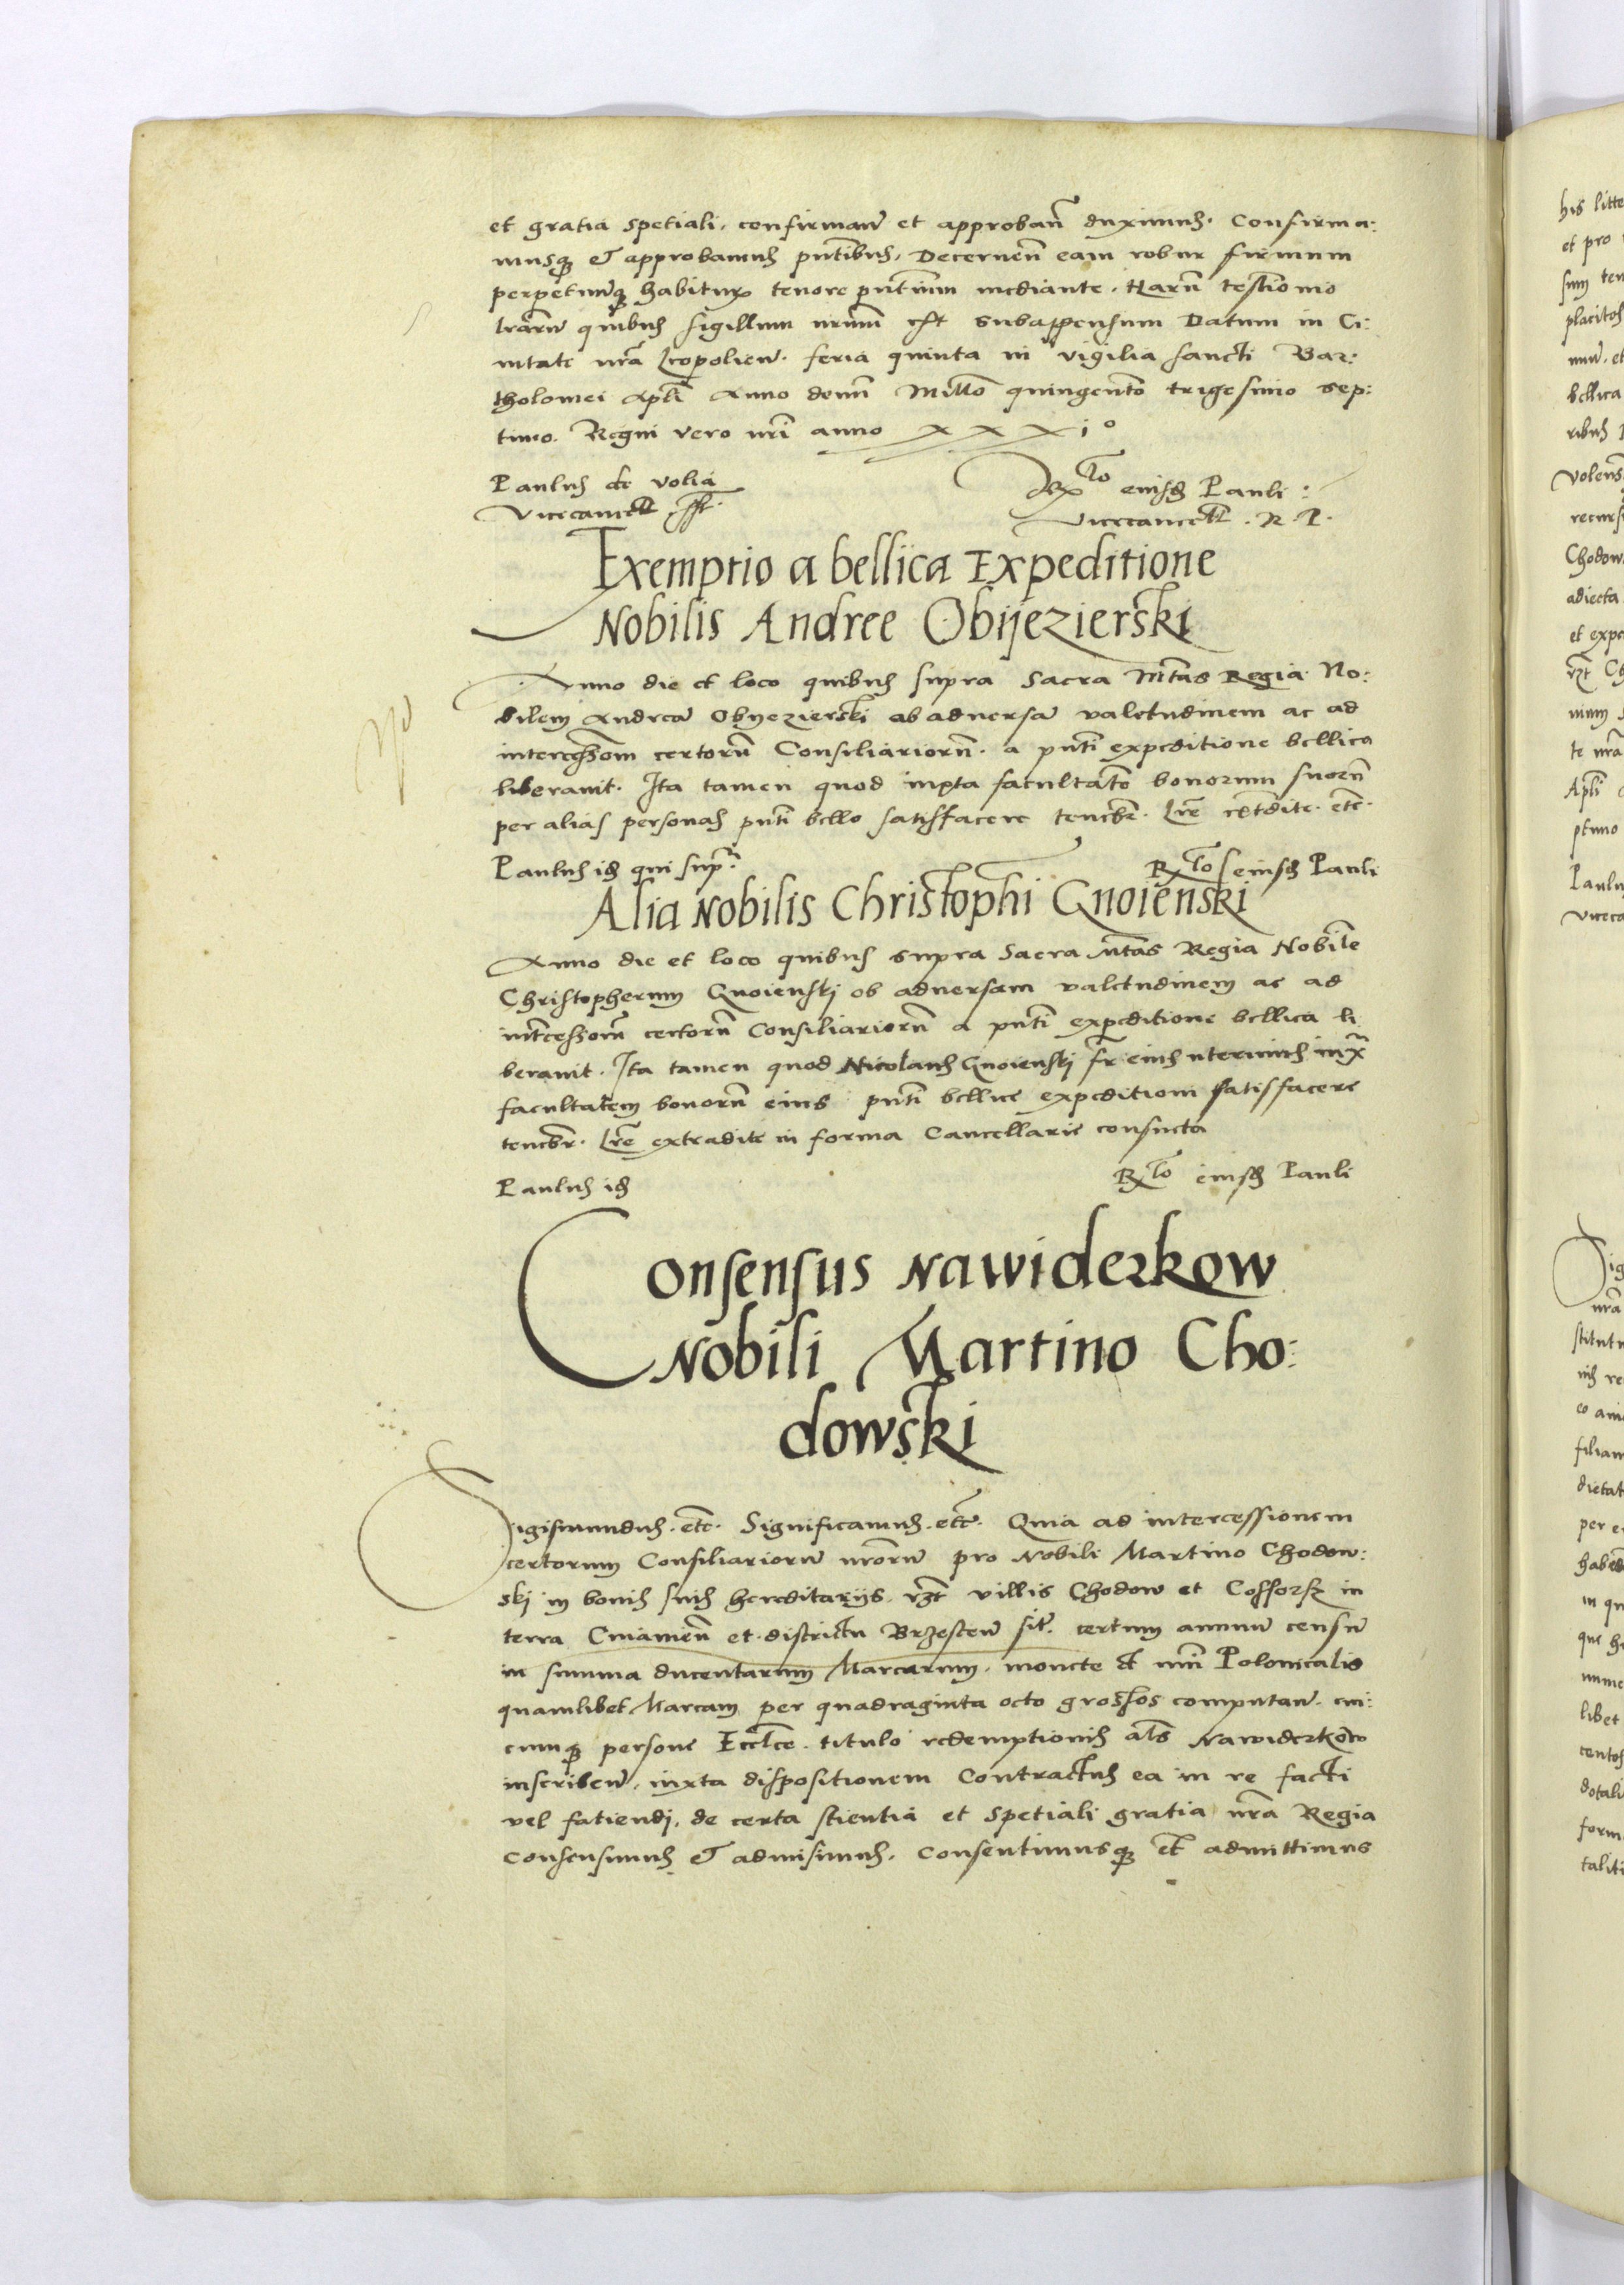 et gratia spetiali, confirmanđ et approbanđ duximus. Confirma:
musqз et approbamus pñtibus, Decerneñ eam robur firmum
perpetuũqз habiturã tenore pñtium mediante. Harũ testimonio
lrãrũ quibus sigillum nrũm est subappensum Datum in Ci:
uitate nrã Leopolień. feria quinta in vigilia sancti Bar:
tholomei Apłi Anno domi Millo quingento trigesimo sep:
timo. Regni vero nri anno xxxi°
Paulus de Volia
Vicecancell sst.
Rło eiusđ Pauli:
Vicecancell. R. P.
Exemptio a bellica Expeditione
Nobilis Andree Obijezierski
Anno die et loco quibus supra Sacra Mtas Regia No:
bilem Andreã Obyezierski ob aduersã valetudinem ac ad
intercessiom certorũ Consiliariorũ. a pñti expeditione bellica
liberauit. Ita tamen quod iuxta facultatẽ bonorum suorũ
per alias personas pñti bello satisfacere teneb̃r. Lrẽ extrdite. etc.
Paulus iđ qui supr̃
Rło eiusđ Pauli
Alia Nobilis Christophi Gnoienski
Anno die et loco quibus supra Sacra Mtas Regia Nobilẽ
Christopherum Gnoienskj ob aduersam valetudinem ac ad
intcessiom certorũ Consiliariorũ a pñti expeditione bellica li
berauit. Ita tamen quod Nicolaus Gnoienskj fr eius uterinus iux̃
facultatem bonorũ eius pñti bellice expeditioni satisfacere
teneb̃r. Lrẽ extradite in forma Cancellarie consueta
Paulus iđ
Rło eiusđ Pauli
Consensus Nawiderkow
Nobili Martino Cho:
dowski
Sigismundus. etc. Significamus. etc. Quia ad intercessionem
certorum Consiliariorũ nrorũ pro Nobili Martino Chodow:
skj in bonis suis hereditarijs. vzt villis Chodow et Cossorz in
terra Cuiauień et districtu Brzesceń sit̃. certum annuũ censũ
in summa ducentarum Marcarum. monete et nrĩ Polonicalis
quamlibet Marcam per quadraginta octo grossos computanđ. cui:
cunqз persone Ecclce. titulo redemptionis als Nawiderkow
inscribenđ, iuxta dispositionem Contractus ea in re facti
vel fatiendj, de certa scientia et spetiali gratia nrã Regia
consensimus et admisimus. Consentimusqз et admittimus